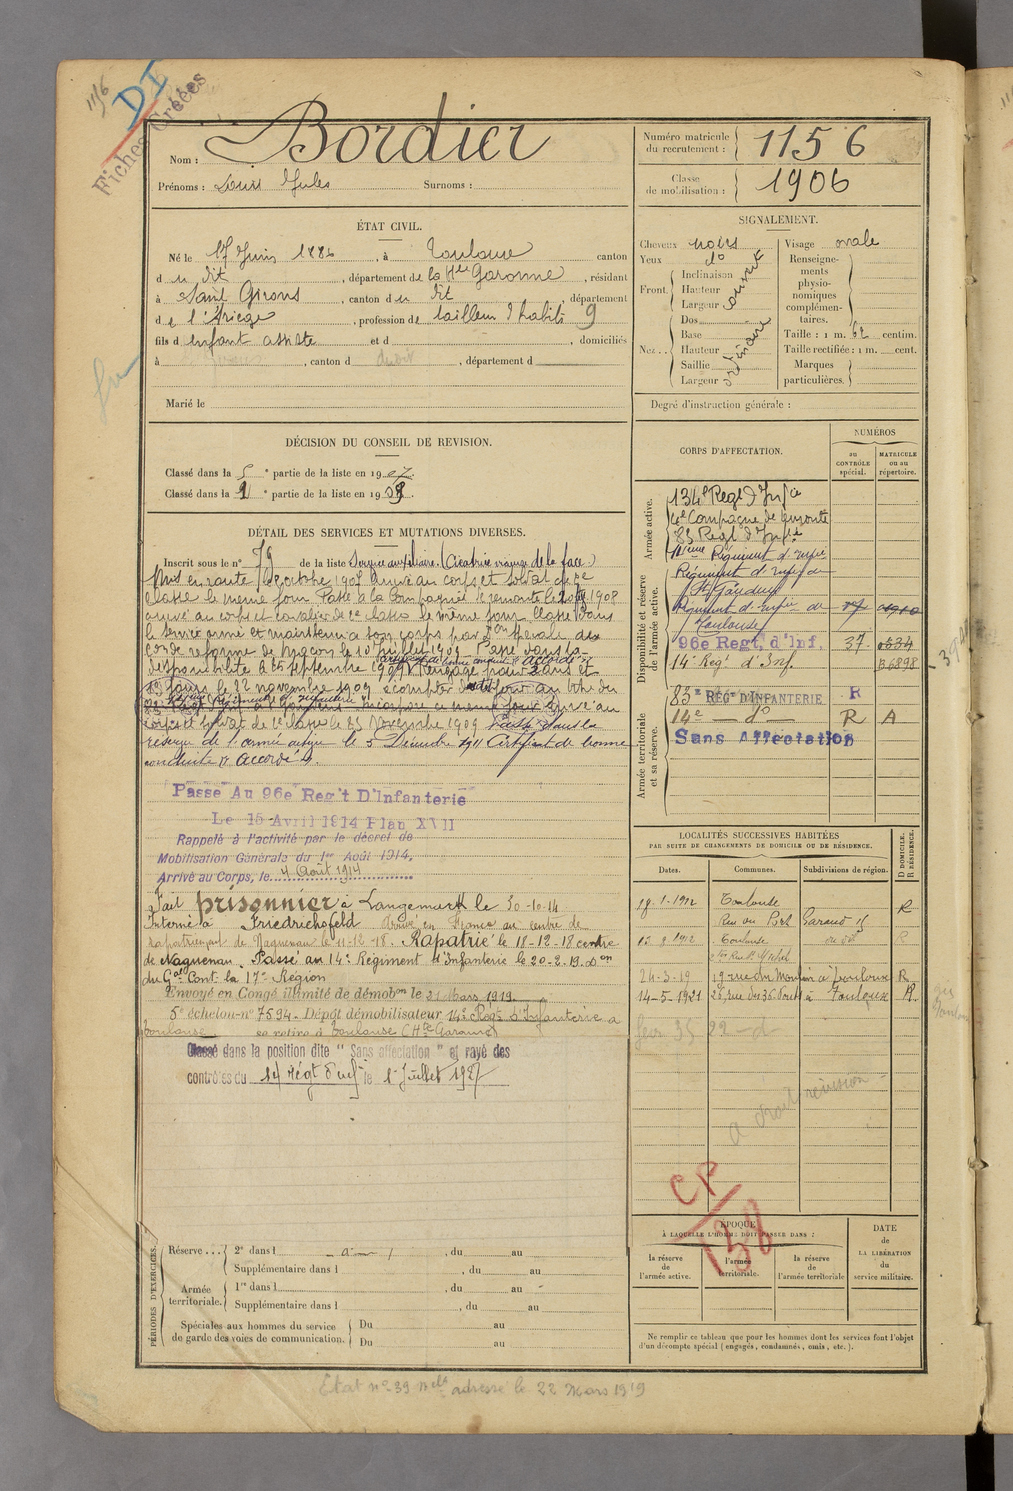 1156
DI
Fiches Créées
Nom : Bordier
Prénoms : Louis Jules Surnoms :
Numéro matricule du recrutement : 1156
Classe de mobilisation : 1906
ÉTAT CIVIL.
Né le 17 Juin 1886, à Toulouse canton
d u dit, département de la Hte Garonne, résidant
à Saint Girons, canton d u dit, département
d e l'Ariège, profession de tailleur d'habits 9
fils d' enfant assisté et d, domiciliés
à, canton d, département d
Marié le
SIGNALEMENT.
Cheveux noirs Visage ovale
Yeux do Renseignements physionomiques complémentaires.
Front. Inclinaison
Hauteur
Largeur
Nez.. Dos
Base
Hauteur
Saillie
Largeur
ordinaire
Taille : 1 m. 62 centim.
Taille rectifiée : 1 m. cent.
Marques particulières.
Degré d'instruction générale :
DÉCISION DU CONSEIL DE REVISION.
Classé dans la 5e partie de la liste en 1907.
Classé dans la partie de la liste en 190
DÉTAIL DES SERVICES ET MUTATIONS DIVERSES.
Inscrit sous le n° 79 de la liste Service auxiliaire. (Cicatrice vicieuse de la face)
Mis en route arrivé au corps et soldat de 2e
classe le même jour. Passé à la Compagnie de remonte le 1908
arrivé au corps et cavalier de 2e classe le même jour. Classé dans
le service armé et maintenu à son corps par
de réforme de Mâcon le 10 Juillet 1909. Passé dans la
disponibilité le 25 septembre 1909. Rengagé pour 2 ans et
13 jours le 22 novembre 1909 à compter dudit jour au titre du
corps et soldat de 2e classe le 23 Novembre 1909 Passé dans la
réserve de l'armée active le 5 Décembre 1911 Certificat de bonne
conduite accordé.
Passé Au 96e Reg't D'Infanterie
Le 15 Avril 1914 Plan XVII
Rappelé à l'activité par le décret de
Mobilisation Générale du 1er Août 1914.
Arrivé au Corps, le 4 Août 1914
Fait prisonnier à Langemark le 30-10-14
Interné à Friedrichsfeld arrivé en France au centre de
rapatriement de Haguenau le 11-12-18. Rapatrié le 18-12-18 centre
de Haguenau. Passé au 14e Régiment d'Infanterie le 20-2-19. Don
du Gal Cont la 17e Région
Envoyé en Congé illimité de démobon le 21 Mars 1919.
5e échelon-n° 7594. Dépôt démobilisateur 14e Régt d'Infanterie à
Toulouse se retire à Toulouse (Hte Garonne)
Classé dans la position dite "Sans affectation" et rayé des
contrôles du 14 Régt d'Infie le 1er Juillet 1927
CORPS D'AFFECTATION.
NUMÉROS
au CONTRÔLE spécial.
MATRICULE ou au répertoire.
Armée active.
134e Regt d'Infie
4e Compagnie de remonte
83 Regt d'Infie
Disponibilité et réserve de l'armée active.
Régiment d'infie de
St Gaudens
Régiment d'infie de
Toulouse
96e Regt. d'Inf. 37 0334
14e Regt d'Inf. B 6898
Armée territoriale et sa réserve.
83e REGt D'INFANTERIE R
14e — do — R A
Sans Affectation
LOCALITÉS SUCCESSIVES HABITÉES
PAR SUITE DE CHANGEMENTS DE DOMICILE OU DE RÉSIDENCE.
D DOMICILE. R RÉSIDENCE.
Dates. Communes. Subdivisions de région.
18-1-1912 Toulouse R
Rue du Port Garaud
Toulouse
24-3-19 19 rue du Moulin à Toulouse R
14-5-1921 26, rue des 36 Ponts à Toulouse R
CP
138
ÉPOQUE
À LAQUELLE L'HOMME DOIT PASSER DANS :
la réserve de l'armée active.
l'armée territoriale.
la réserve de l'armée territoriale
DATE de LA LIBÉRATION du service militaire.
Ne remplir ce tableau que pour les hommes dont les services font l'objet
d'un décompte spécial (engagés, condamnés, omis, etc.).
PÉRIODES D'EXERCICES.
Réserve... 2e dans l, du au
Supplémentaire dans l, du au
Armée territoriale. 1re dans l, du au
Supplémentaire dans l, du au
Spéciales aux hommes du service de garde des voies de communication. Du au
Du au
Etat n° 39 adressé le 22 Mars 1919